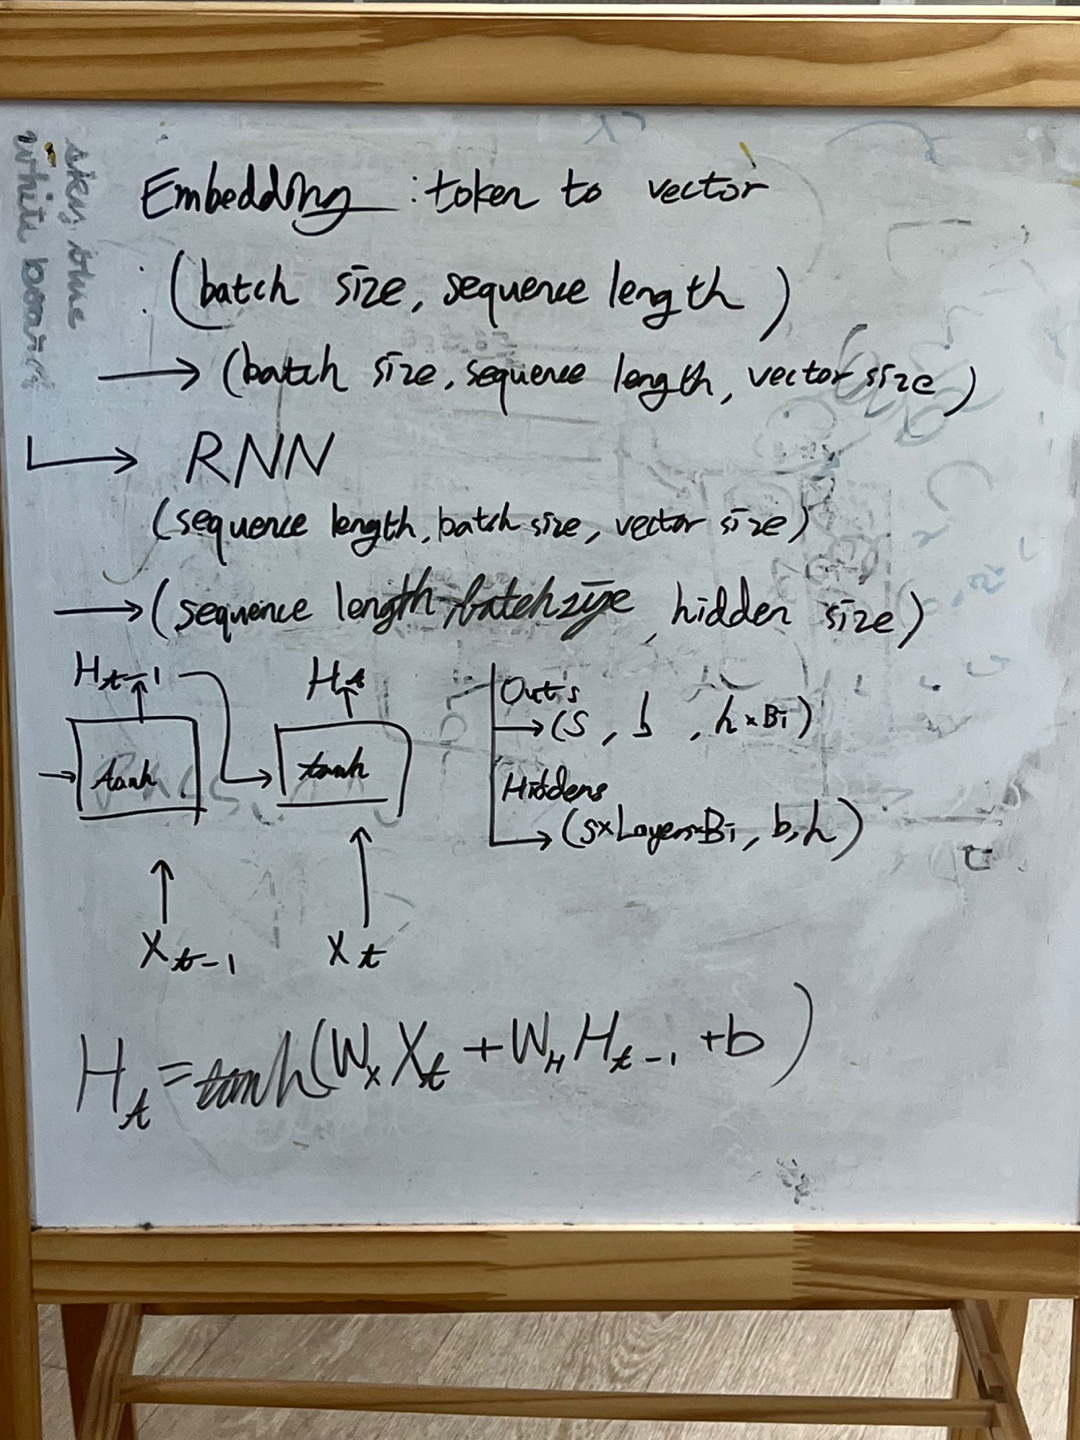 Embedding : token to vector
: (batch size, sequence length)
→ (batch size, sequence length, vector size)
→ RNN
(sequence length, batch size, vector size)
→ (sequence length, batch size, hidden size)
H t-1 H t
Outs
→ (S, b, h×Bi)
tanh tanh
Hiddens
→ (S×Layers×Bi, b, h)
X t-1 X t
H t = tanh(W x X t + W H H t-1 + b)
sky blue
white board